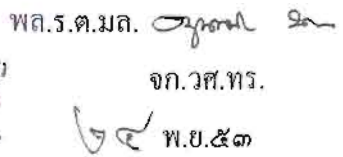 พล.ร.ต.มล.
จก.วศ.ทร.
๒๔ พ.ย.๕๓